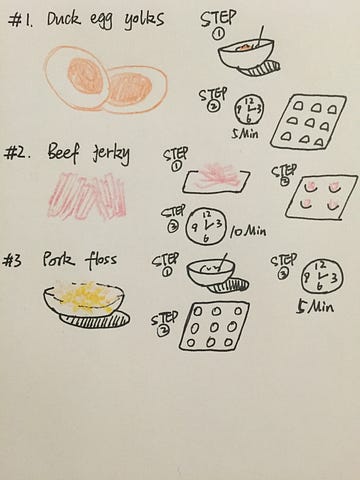 #1. Duck egg yolks
STEP
①
STEP
②
12
9 3
6
5 Min
#2. Beef Jerky
STEP
①
STEP
②
STEP
③
12
9 3
6
10 Min
#3 Pork floss
STEP
①
STEP
②
STEP
③
12
9 3
6
5 Min